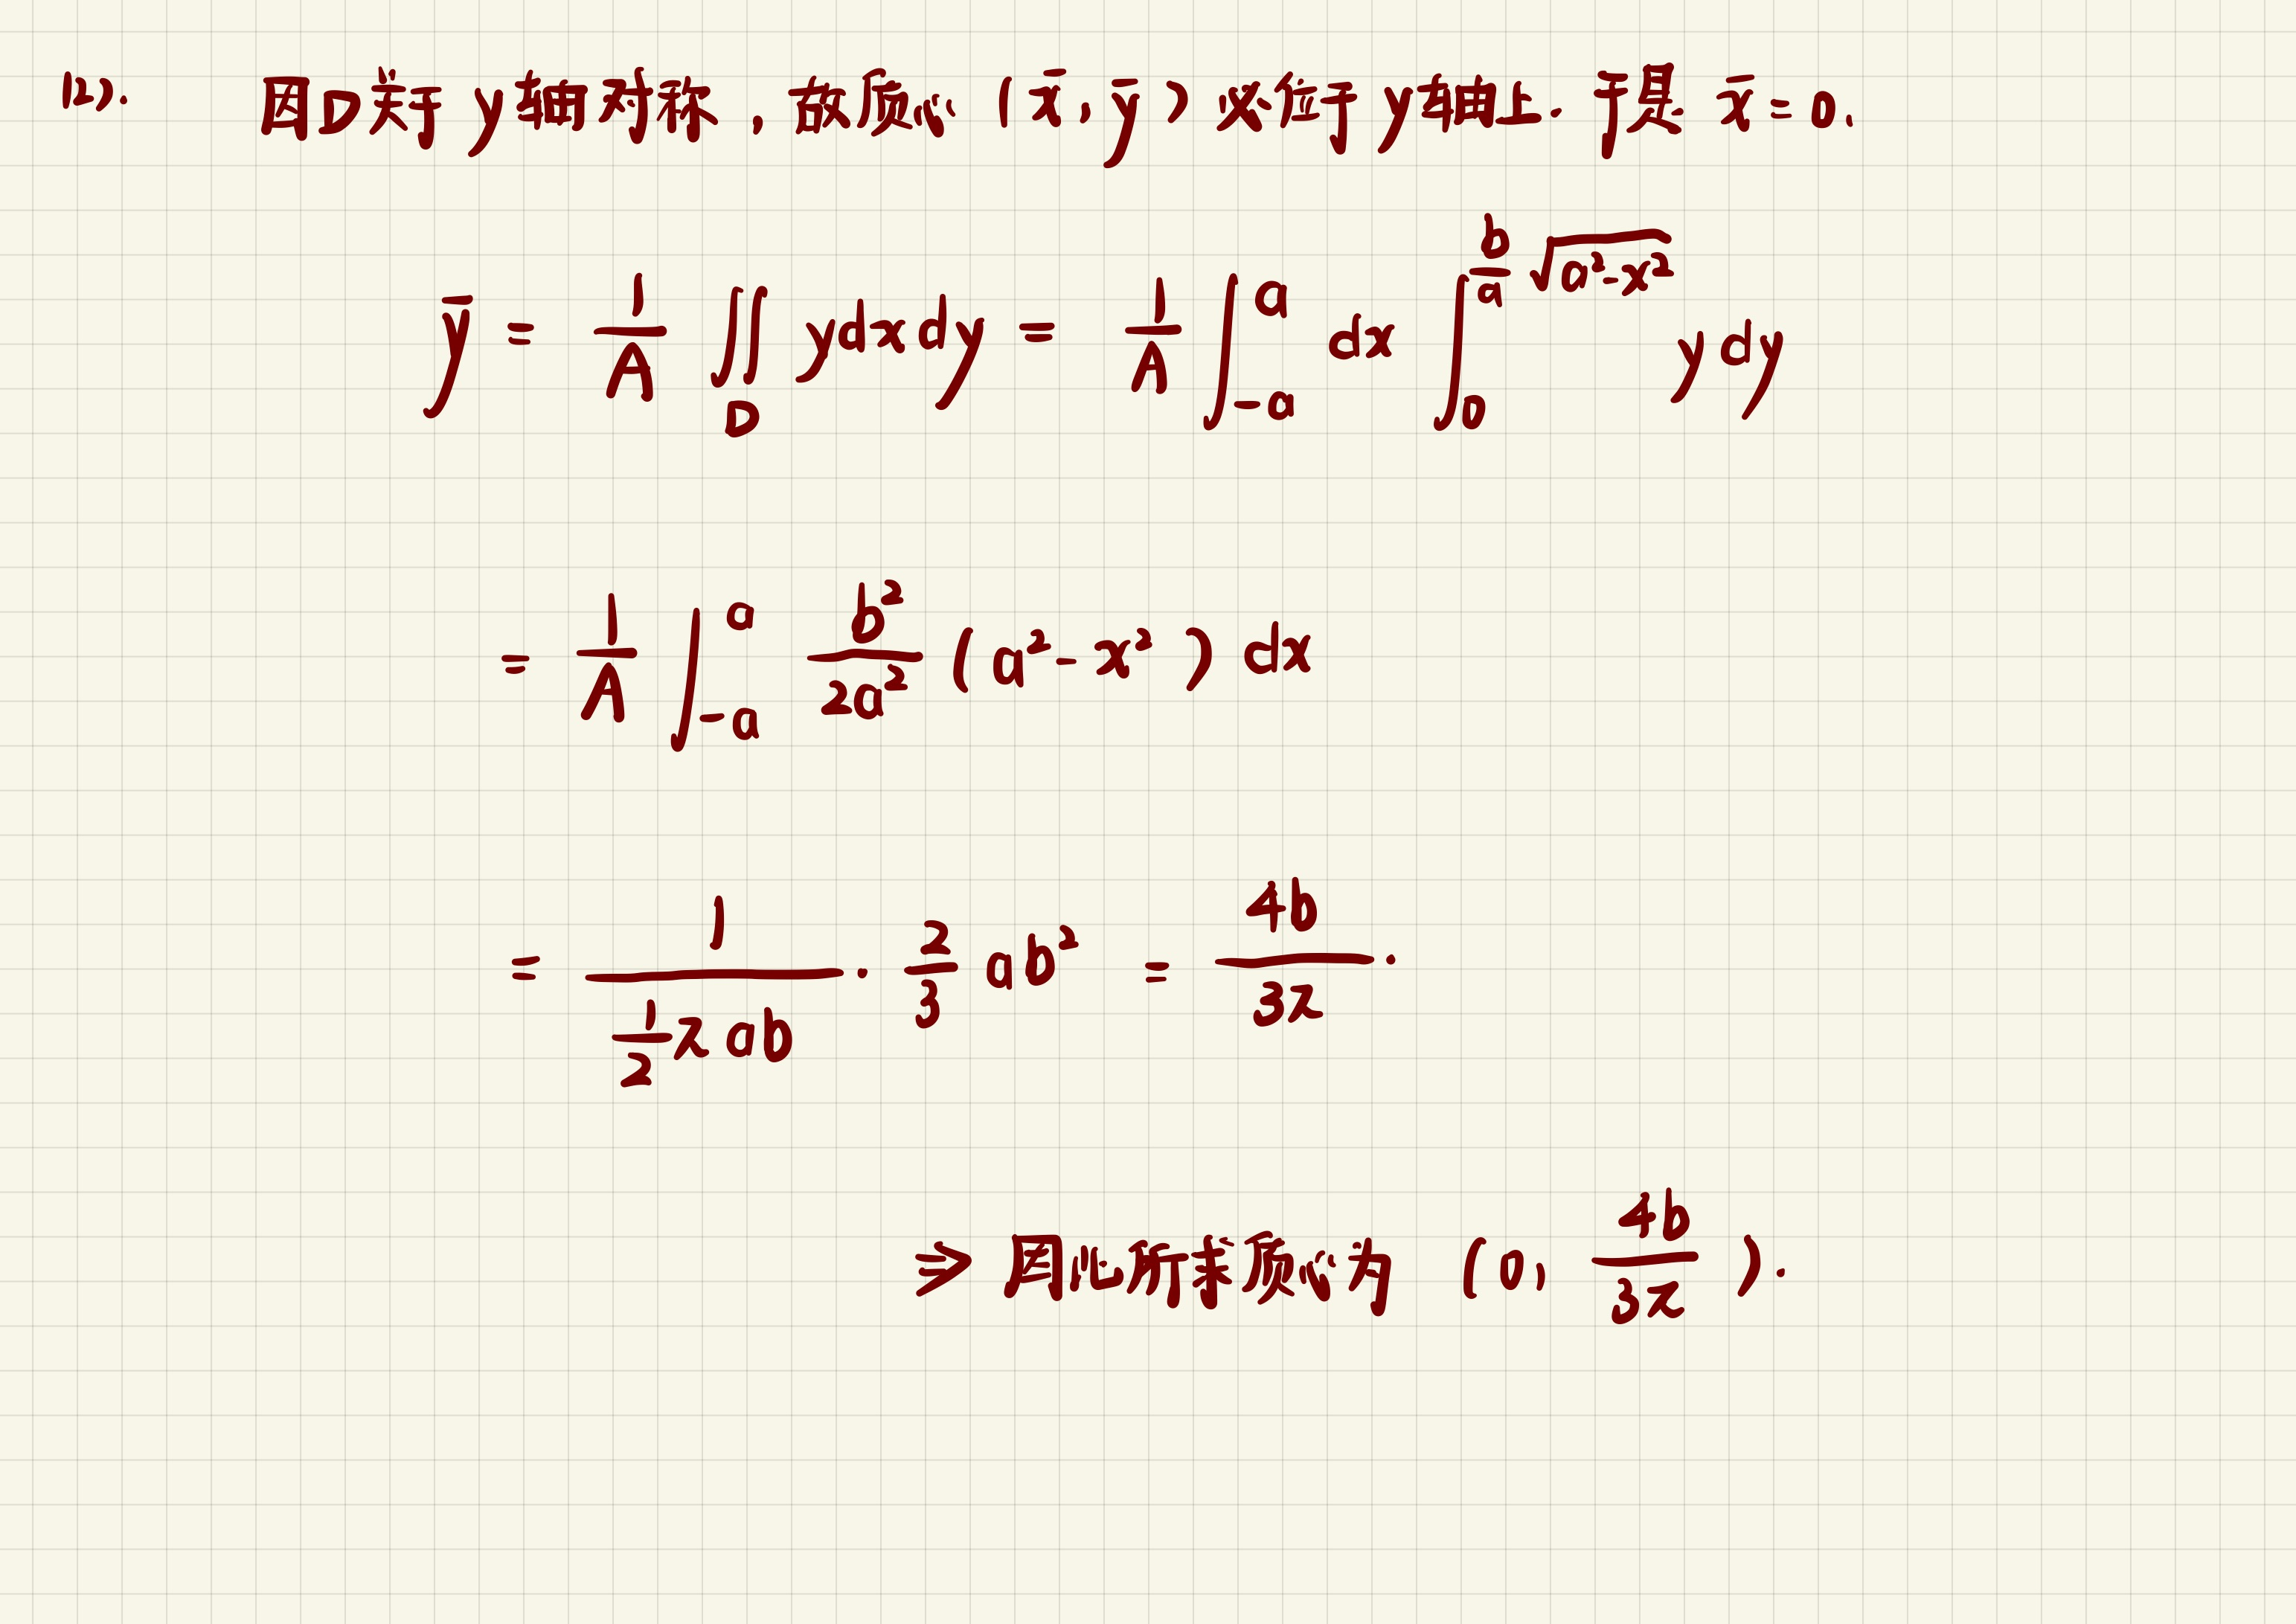 (2). 因D关于y轴对称, 故质心 (x̄, ȳ) 必位于y轴上. 于是 x̄=0.
ȳ = 1/A ∬_D ydxdy = 1/A ∫_{-a}^{a} dx ∫_0^{b/a √(a²-x²)} ydy
= 1/A ∫_{-a}^{a} b²/2a² (a²-x²) dx
= 1/(1/2 π ab) · 2/3 ab² = 4b/3π .
⇒ 因此所求质心为 (0, 4b/3π ).